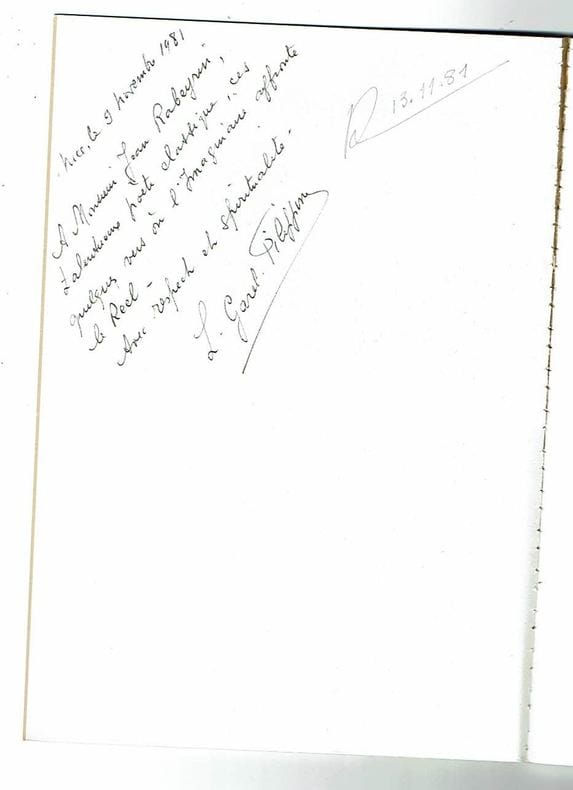 Nice, le 9 novembre 1981
A Monsieur Jean Rabeyrin,
talentueux poète classique, ces
quelques vers où l'Imaginaire affronte
le Réel -
Avec respect et spiritualité.
L. Garel. Philippon
13.11.81